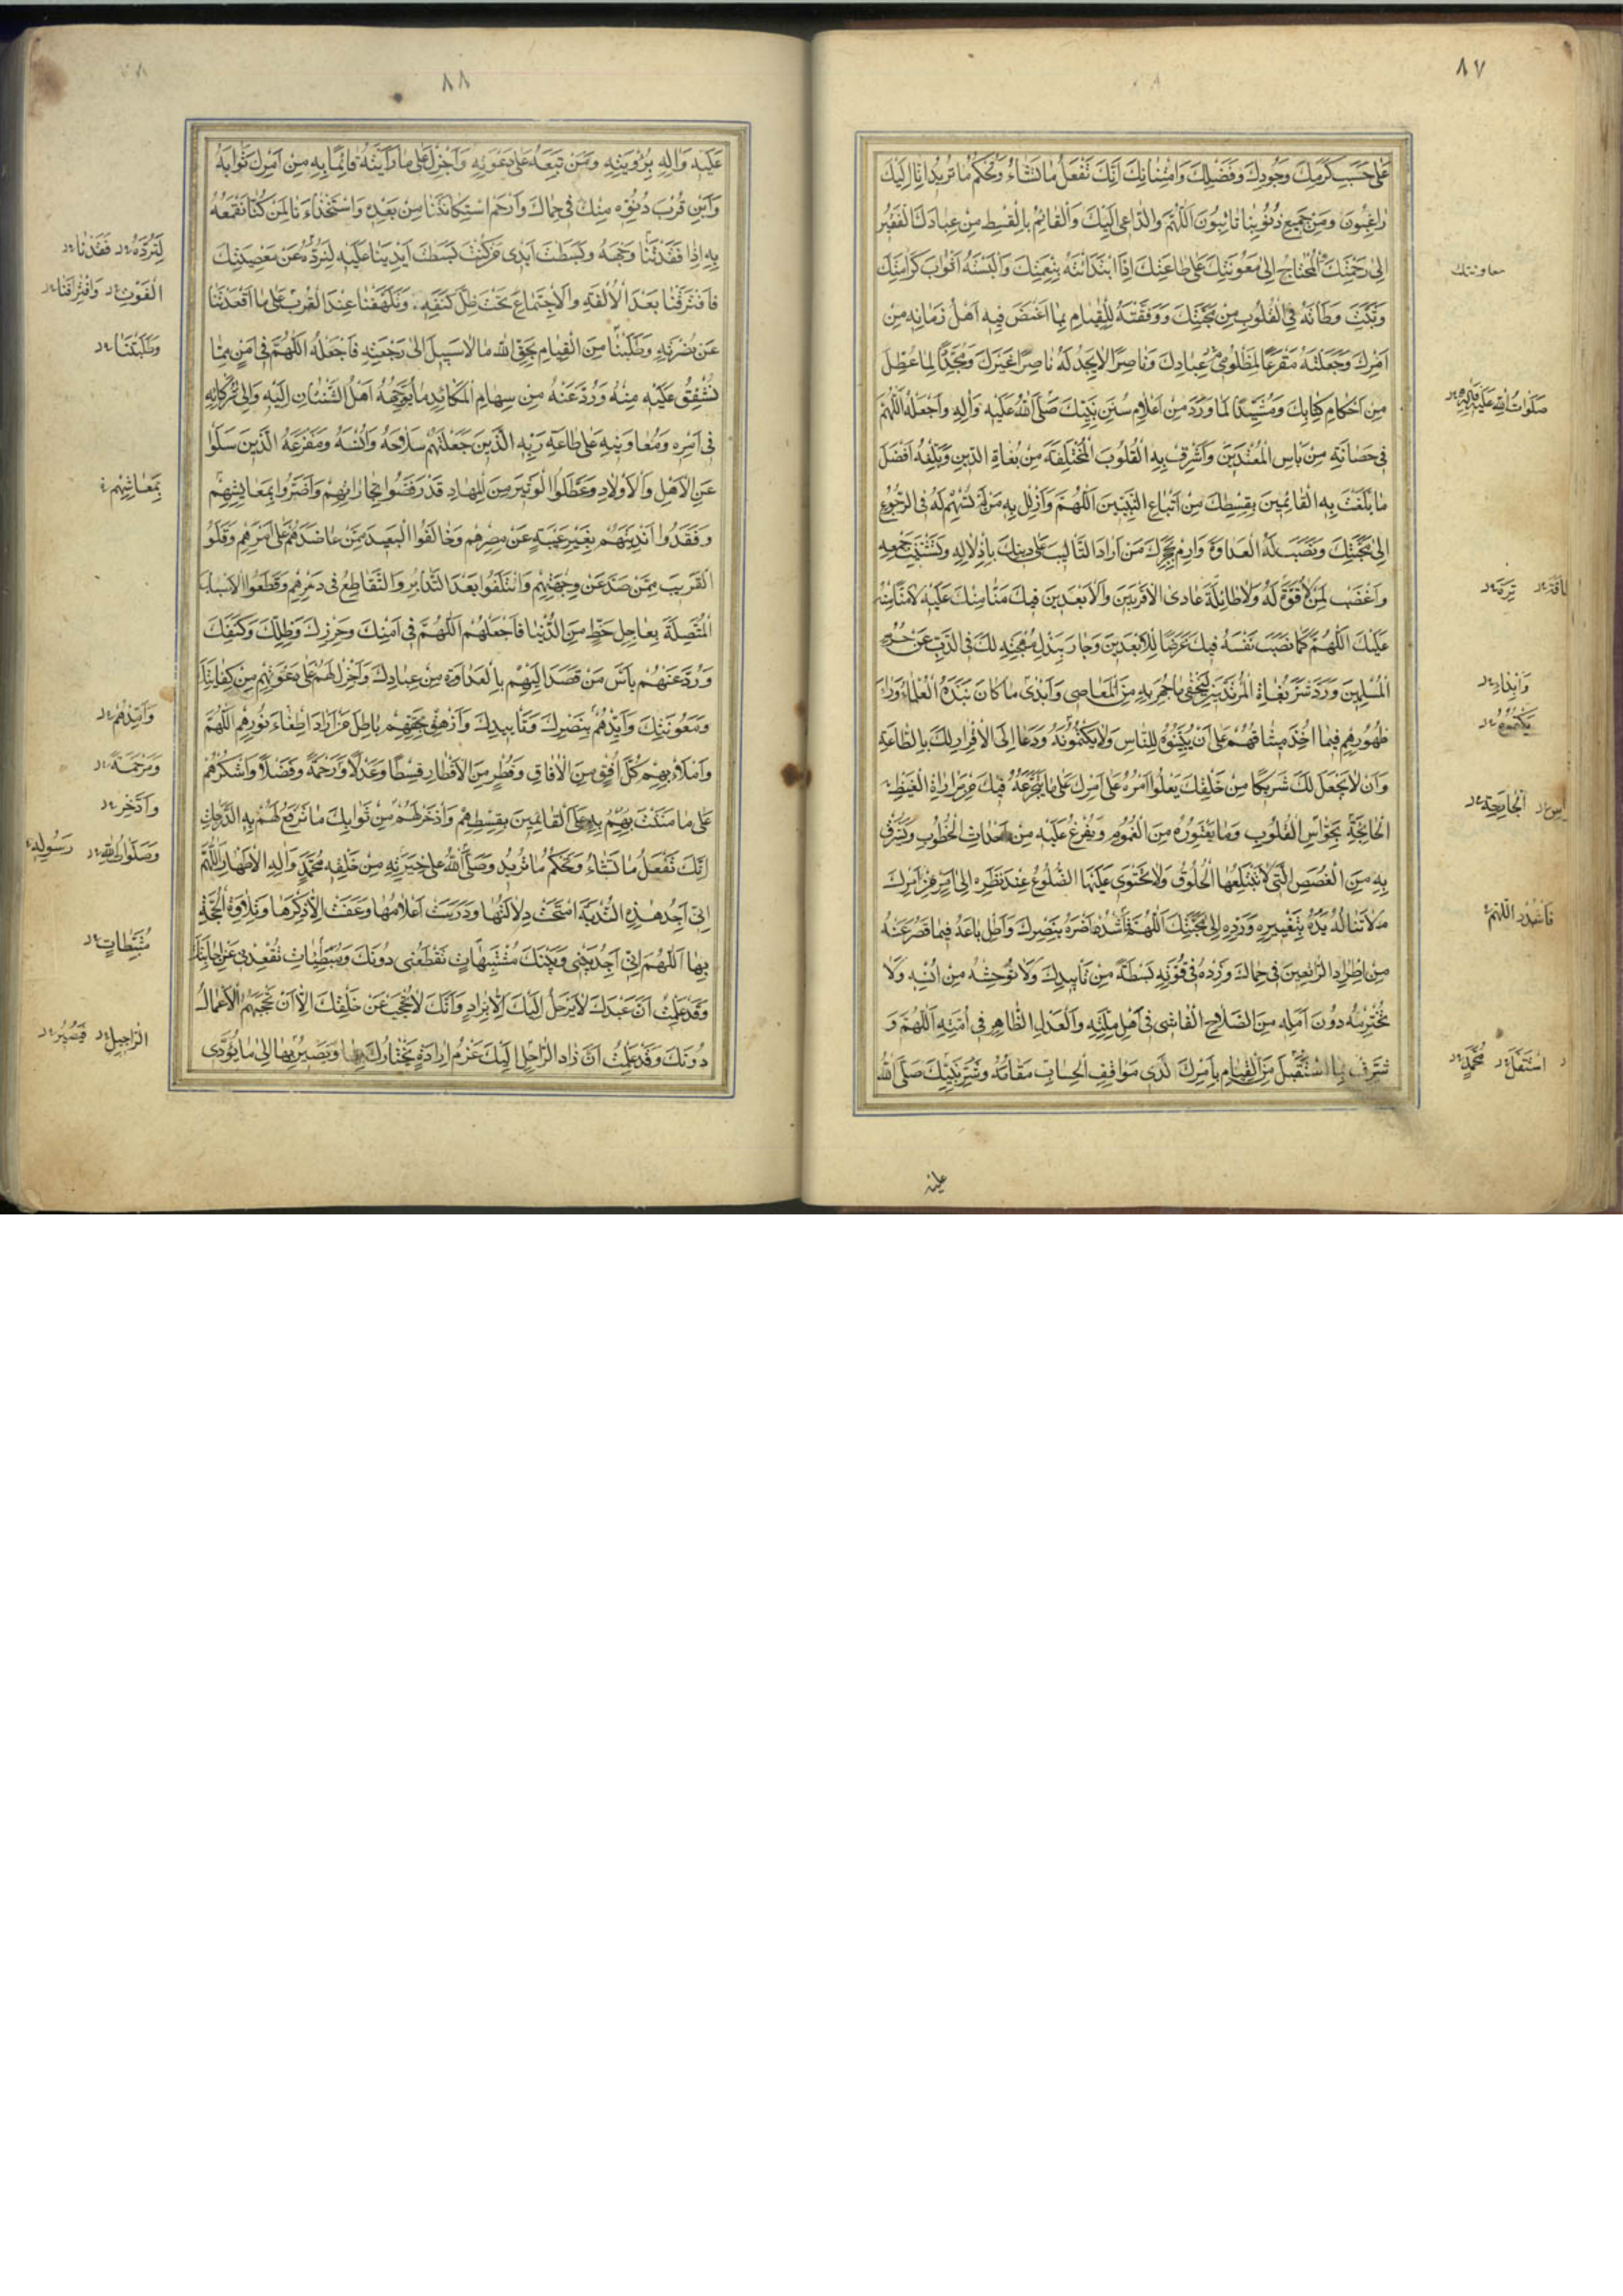 ٨٧
عَلى حَسَبِ كَرَمِكَ وَجُودِكَ وَفَضْلِكَ وَامْتِنانِكَ اِنَّكَ تَفْعَلُ ما تَشاءُ وَتَحْكُمُ ما تُريدُ اِنّا اِلَيْكَ
راغِبُونَ وَمِنْ جَميعِ ذُنُوبِنا تائِبُونَ اَللّهُمَّ وَالدّاعى اِلَيْكَ وَالْقائِمُ بِالْقِسْطِ مِنْ عِبادِكَ الْفَقيرُ
اِلى رَحْمَتِكَ الْمُحْتاجُ اِلى مَعُونَتِكَ عَلى طاعَتِكَ اِذَا ابْتَدَأْتَهُ بِنِعْمَتِكَ وَاَلْبَسْتَهُ اَثْوابَ كَرامَتِكَ
معاونتك
وَثَبَّتَّ وَطْاَتَهُ فِى الْقُلُوبِ مِنْ مَحَبَّتِكَ وَوَفَّقْتَهُ لِلْقِيامِ بِما اَغْمَضَ فيهِ اَهْلُ زَمانِهِ مِنْ
اَمْرِكَ وَجَعَلْتَهُ مَفْزَعًا لِمَظْلُومى عِبادِكَ وَناصِرًا لِمَنْ لا يَجِدُ لَهُ ناصِرًا غَيْرَكَ وَمُجَدِّدًا لِما عُطِّلَ
مِنْ اَحْكامِ كِتابِكَ وَمُشَيِّدًا لِما وَرَدَ مِنْ اَعْلامِ سُنَنِ نَبِيِّكَ صَلَّى اللّهُ عَلَيْهِ وَآلِهِ وَاجْعَلْهُ اللّهُمَّ
صَلَواتُ اللهِ عَلَيْهِ وَآلِهِ
فى حَصانَةٍ مِنْ بَأْسِ الْمُعْتَدينَ وَاَشْرِقْ بِهِ الْقُلُوبَ الْمُخْتَلِفَةَ مِنْ بُغاةِ الدّينِ وَبَلِّغْهُ اَفْضَلَ
ما بَلَّغْتَ بِهِ الْقائِمينَ بِقِسْطِكَ مِنْ اَتْباعِ النَّبِيّينَ اَللّهُمَّ وَاَذْلِلْ بِهِ مَنْ لَمْ تُسْهِمْ لَهُ فِى الرُّجُوعِ
اِلى مَحَبَّتِكَ وَنَصَبَ لَهُ الْعَداوَةَ وَارْمِ بِحَجَرِكَ مَنْ اَرادَ التَّاْليبَ عَلى دينِكَ بِاِذْلالِهِ وَتَشْتيتِ جَمْعِهِ
وَاغْضَبْ لِمَنْ لا قُوَّةَ لَهُ وَلا طائِلَةَ عادَى الْاَقْرَبينَ وَالْاَبْعَدينَ فيكَ مَنًّا مِنْكَ عَلَيْهِ لا مَنًّا مِنْهُ
تِرَةَ
عَلَيْكَ اَللّهُمَّ كَما نَصَبَ نَفْسَهُ فيكَ غَرَضًا لِلْاَبْعَدينَ وَجادَ بِبَذْلِ مُهْجَتِهِ لَكَ فِى الذَّبِّ عَنْ حَريمِ
الْمُسْلِمينَ وَرَدَّ شَرَّ بُغاةِ الْمُرْتَدّينَ لِيُخْفى ما جُهِرَ بِهِ مِنَ الْمَعاصى وَاَبْدى ما كانَ نَبَذَهُ الْعُلَماءُ وَراءَ
ظُهُورِهِمْ فيما اَخَذَ ميثاقَهُمْ عَلى اَنْ يُبَيِّنُوهُ لِلنّاسِ وَلا يَكْتُمُونَهُ وَدَعا اِلَى الْاِقْرارِ لَكَ بِالطّاعَةِ
يَكْتُمُوهُ
وَاَنْ لا يَجْعَلَ لَكَ شَريكًا مِنْ خَلْقِكَ يَعْلُو اَمْرُهُ عَلى اَمْرِكَ عَلى ما يَتَجَرَّعُهُ فيكَ مِنْ مَراراتِ الْغَيْظِ
الْجارِحَةِ
الْجائِحَةِ بِحَواسِّ الْقُلُوبِ وَما يَعْتَوِرُهُ مِنَ الْغُمُومِ وَيُفْرَغُ عَلَيْهِ مِنْ اَحْداثِ الْخُطُوبِ وَيَشْرَقُ
بِهِ مِنَ الْغُصَصِ الَّتى لا تَبْتَلِعُهَا الْحُلُوقُ وَلا تَحْتَوى عَلَيْهَا الضُّلُوعُ عِنْدَ نَظَرِهِ اِلى اَمْرٍ مِنْ اَمْرِكَ
لا تَنالُهُ يَدُهُ بِتَغْييرِهِ وَرَدِّهِ اِلى مَحَبَّتِكَ اَللّهُمَّ فَاشْدُدْ اَزْرَهُ بِنَصْرِكَ وَاَطِلْ باعَهُ فيما قَصُرَ عَنْهُ
فَاشْدُدِ اللّهُمَّ
مِنِ اطِّرادِ الرّاتِعينَ فى حِماكَ وَزِدْهُ فى قُوَّتِهِ بَسْطَةً مِنْ تَأْييدِكَ وَلا تُوحِشْهُ مِنْ اُنْسِهِ وَلا
تَخْتَرِمْهُ دُونَ اَمَلِهِ مِنَ الصَّلاحِ الْفاشى فى اَهْلِ مِلَّتِهِ وَالْعَدْلِ الظّاهِرِ فى اُمَّتِهِ اَللّهُمَّ وَ
شَرِّفْ بِمَا اسْتَقْبَلَ مِنَ الْقِيامِ بِاَمْرِكَ لَدى مَواقِفِ الْحِسابِ مَقامَهُ وَسُرَّ نَبِيَّكَ صَلَّى اللّهُ
مُحَمَّدٍ
عليه
٨٨
عَلَيْهِ وَآلِهِ بِرُؤْيَتِهِ وَمَنْ تَبِعَهُ عَلى دَعْوَتِهِ وَاَجْزِلْ عَلى ما رَاَيْتَهُ قائِمًا بِهِ مِنْ اَمْرِكَ ثَوابَهُ
وَاَبِنْ قُرْبَ دُنُوِّهِ مِنْكَ فى حِماكَ وَارْحَمِ اسْتِكانَتَنا مِنْ بَعْدِهِ وَاسْتِخْذاءَنا لِمَنْ كُنّا نَقْمَعُهُ
بِهِ اِذا فَقَدْتَنا وَجْهَهُ وَبَسَطْتَ اَيْدى مَنْ كُنْتَ بَسَطْتَ اَيْدِيَنا عَلَيْهِ لِنَرُدَّهُ عَنْ مَعْصِيَتِكَ
لِتَرُدَّهُ فَقَدْنا
فَافْتَرَقْنا بَعْدَ الْاُلْفَةِ وَالْاِجْتِماعِ تَحْتَ ظِلِّ كَنَفِهِ وَتَلَهَّفْنا عِنْدَ الْقَرْبِ عَلى ما اَقْعَدْتَنا
الْفَوْتِ وَافْتِراقَنا
عَنْ نُصْرَتِهِ وَطَلَبْنا مِنَ الْقِيامِ بِحَقِّ اللّهِ ما لا سَبيلَ اِلى رَجْعَتِهِ فَاجْعَلْهُ اللّهُمَّ فى اَمْنٍ مِمّا
وَطَلَبَتَنا
نُشْفِقُ عَلَيْهِ مِنْهُ وَرُدَّ عَنْهُ مِنْ سِهامِ الْمَكائِدِ ما يُوَجِّهُهُ اَهْلُ الشَّنَئانِ اِلَيْهِ وَاِلى شُرَكائِهِ
فى اَمْرِهِ وَمُعاوِنيهِ عَلى طاعَةِ رَبِّهِ الَّذينَ جَعَلْتَهُمْ سِلاحَهُ وَاُنْسَهُ وَمَفْزَعَهُ الَّذينَ سَلَوْا
عَنِ الْاَهْلِ وَالْاَوْلادِ وَعَطَّلُوا الْوَثيرَ مِنَ الْمِهادِ قَدْ رَفَضُوا تِجاراتِهِمْ وَاَضَرُّوا بِمَعايِشِهِمْ
بِمَعاشِهِمْ
وَفَقَدُوا اَنْدِيَتَهُمْ بِغَيْرِ غَيْبَةٍ عَنْ مِصْرِهِمْ وَخالَفُوا الْبَعيدَ مِمَّنْ عاضَدَهُمْ عَلى اَمْرِهِمْ وَقَلَوُا
الْقَريبَ مِمَّنْ صَدَّ عَنْ وِجْهَتِهِمْ وَائْتَلَفُوا بَعْدَ التَّدابُرِ وَالتَّقاطُعِ فى دَهْرِهِمْ وَقَطَعُوا الْاَسْبابَ
الْمُتَّصِلَةَ بِعاجِلِ حَظٍّ مِنَ الدُّنْيا فَاجْعَلْهُمُ اللّهُمَّ فى اَمْنِكَ وَحِرْزِكَ وَظِلِّكَ وَكَنَفِكَ
وَرُدَّ عَنْهُمْ بَأْسَ مَنْ قَصَدَ اِلَيْهِمْ بِالْعَداوَةِ مِنْ عِبادِكَ وَاَجْزِلْ لَهُمْ عَلى دَعْوَتِهِمْ مِنْ كِفايَتِكَ
وَمَعُونَتِكَ وَاَيِّدْهُمْ بِنَصْرِكَ وَتَأْييدِكَ وَاَزْهِقْ بِحَقِّهِمْ باطِلَ مَنْ اَرادَ اِطْفاءَ نُورِهِمْ اَللّهُمَّ
وَاَمِدَّهُمْ
وَامْلَاْ بِهِمْ كُلَّ اُفُقٍ مِنَ الْافاقِ وَقُطْرٍ مِنَ الْاَقْطارِ قِسْطًا وَعَدْلاً وَرَحْمَةً وَفَضْلاً وَاشْكُرْهُمْ
وَمَرْحَمَةً
عَلى ما مَنَنْتَ بِهِمْ بِهِ عَلَى الْقائِمينَ بِقِسْطِهِمْ وَاذْخَرْ لَهُمْ مِنْ ثَوابِكَ ما تَرْفَعُ لَهُمْ بِهِ الدَّرَجاتِ
وَادَّخِرْ
اِنَّكَ تَفْعَلُ ما تَشاءُ وَتَحْكُمُ ما تُريدُ وَصَلَّى اللّهُ عَلى خِيَرَتِهِ مِنْ خَلْقِهِ مُحَمَّدٍ وَآلِهِ الْاَطْهارِ اَللّهُمَّ
وَصَلَواتُ اللهِ رَسُولِهِ
اِنّى اَجِدُ هذِهِ النُّدْبَةَ امْتَحَتْ دِلالَتُها وَدَرَسَتْ اَعْلامُها وَعَفَتْ اِلاّ ذِكْرَها وَتِلاوَةَ الْحُجَّةِ
بِها اَللّهُمَّ اِنّى اَجِدُ بَيْنى وَبَيْنَكَ مُشْتَبِهاتٍ تَقْطَعُنى دُونَكَ وَمُبَطِّئاتٍ تُقْعِدُنى عَنْ اِجابَتِكَ
مُثَبِّطاتٍ
وَقَدْ عَلِمْتُ اَنَّ عَبْدَكَ لا يَرْحَلُ اِلَيْكَ اِلاّ بِزادٍ وَاَنَّكَ لا تَحْجُبُ عَنْ خَلْقِكَ اِلاّ اَنْ تَحْجُبَهُمُ الْاَعْمالُ
دُونَكَ وَقَدْ عَلِمْتُ اَنَّ زادَ الرّاحِلِ اِلَيْكَ عَزْمُ اِرادَةٍ يَخْتارُكَ بِها وَيَصيرُ بِها اِلى ما يُؤَدّى